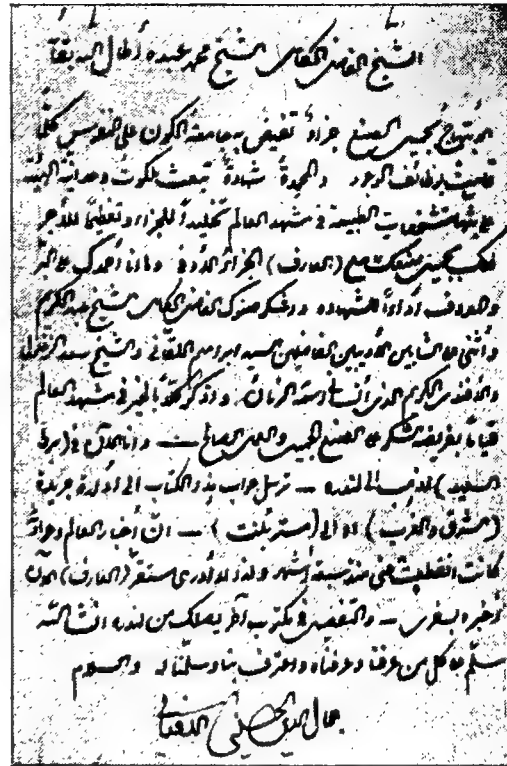 الشيخ الفاضل الكامل الشيخ محمد عبده أطال الله بقاه
الابتهاج بحسن الصنيع جزاء تفيض به جامعة الكون على النفوس كلما
قامت بوظائف الوجود والمحمدة شهادة تبعث ملكوت وحدانية الهيئة
على بثها متشخصات الطبيعة في مشهد العالم تخليداً للجزاء وتعظيماً للأجر
فلك بحسن صنعك مع (العارف) الجزاء الأوفى وها أنا أحمدك على البر
والمعروف أداءاً للشهادة وأشكر صنوك الفاضل الكامل الشيخ عبد الكريم
وأثني على الشابين الأديبين الفاضلين السيد ابراهيم اللقاني والشيخ سعد الزغلول
والأفندي الكريم الذي أنساني اسمه الزمان وأذكر كلاً بالخير في مشهد العالم
قياماً بفريضة الشكر على الصنع الجميل والعمل الصالح — وأنا الآن في (برت
السعيد) للذهاب الى لندره — ترسل جواب هذا الكتاب الى أدارة جريدة
(الشرق والغرب) او الى (مستر بلنت) — ان أخبار العالم وحوادثه
كانت انقطعت عني منذ سبعة أشهر ولهذا لا أدري مستقر (العارف) الآن
أخبره بسفري — والتفصيل في مكتوب آخر يصلك من لندره انشاالله
سلم على كل من عرفنا وعرفناه واعترف بنا وسلمنا له والسلام
جمال الدين الحسيني الافغاني